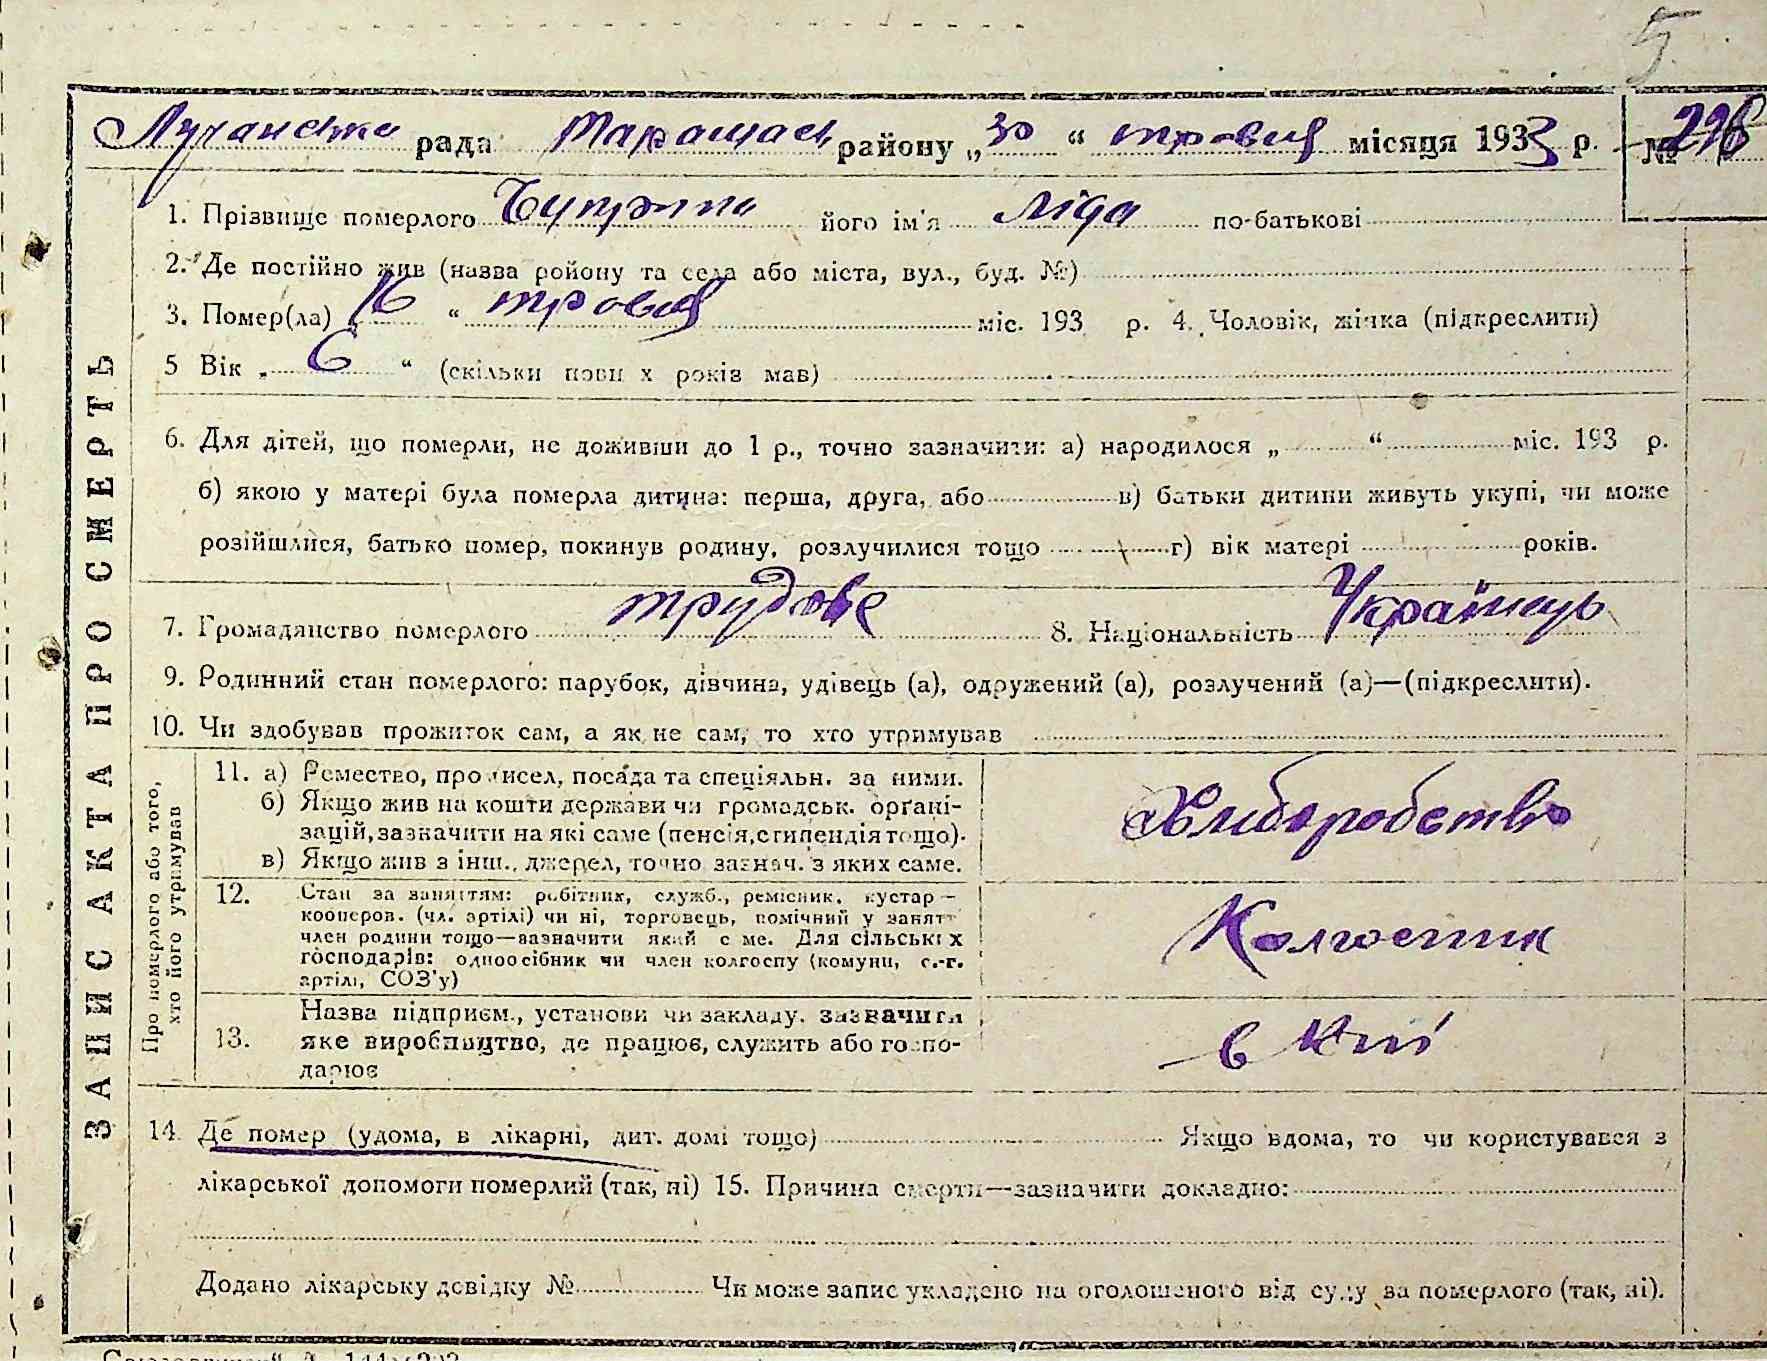 5
Лучанська рада Таращан району „30 “ травня місяця 1933 р. №
1. Прізвище померлого Чуприна його ім'я Ліда по-батькові
2. Де постійно жив (назва ройону та села або міста, вул., буд. №)
3. Помер(ла) „16 “ травня міс. 193 р. 4. Чоловік, жінка (підкреслити)
5 Вік „ 6 “ (скільки повн х років мав)
6. Для дітей, що померли, не доживши до 1 р., точно зазначити: а) народилося „ “ міс. 193 р.
б) якою у матері була померла дитина: перша, друга, або в) батьки дитини живуть укупі, чи може
розійшлися, батько помер, покинув родину, розлучилися тощо г) вік матері років.
7. Громадянство померлого трудове 8. Національність Українець
9. Родинний стан померлого: парубок, дівчина, удівець (а), одружений (а), розлучений (а)—(підкреслити).
10. Чи здобував прожиток сам, а як не сам, то хто утримував
ЗАПИС АКТА ПРО СМЕРТЬ
Про померлого або того,
хто його утримував
11. а) Ремество, промисел, посада та спеціяльн. за ними.
б) Якщо жив на кошти держави чи громадськ. орґані-
зацій, зазначити на які саме (пенсія, стипендія тощо).
в) Якщо жив з інш., джерел, точно зазнач. з яких саме.
Хліборобство
12. Стан за заняттям: робітник, служб., ремісник, кустар —
кооперов. (чл. артілі) чи ні, торговець, помічний у занятт
член родини тощо—зазначити який с ме. Для сільськіх
господарів: одноосібник чи член колгоспу (комуни, с.-г.
артілі, СОЗ'у)
Колгоспник
13. Назва підприєм., установи чи закладу. зазначити
яке виробництво, де працює, служить або госпо-
дарює
в
14. Де помер (удома, в лікарні, дит. домі тощо) Якщо вдома, то чи користувався з
лікарської допомоги померлий (так, ні) 15. Причина смерти—зазначити докладно:
Додано лікарську довідку № Чи може запис укладено на оголошеного від суду за померлого (так, ні).